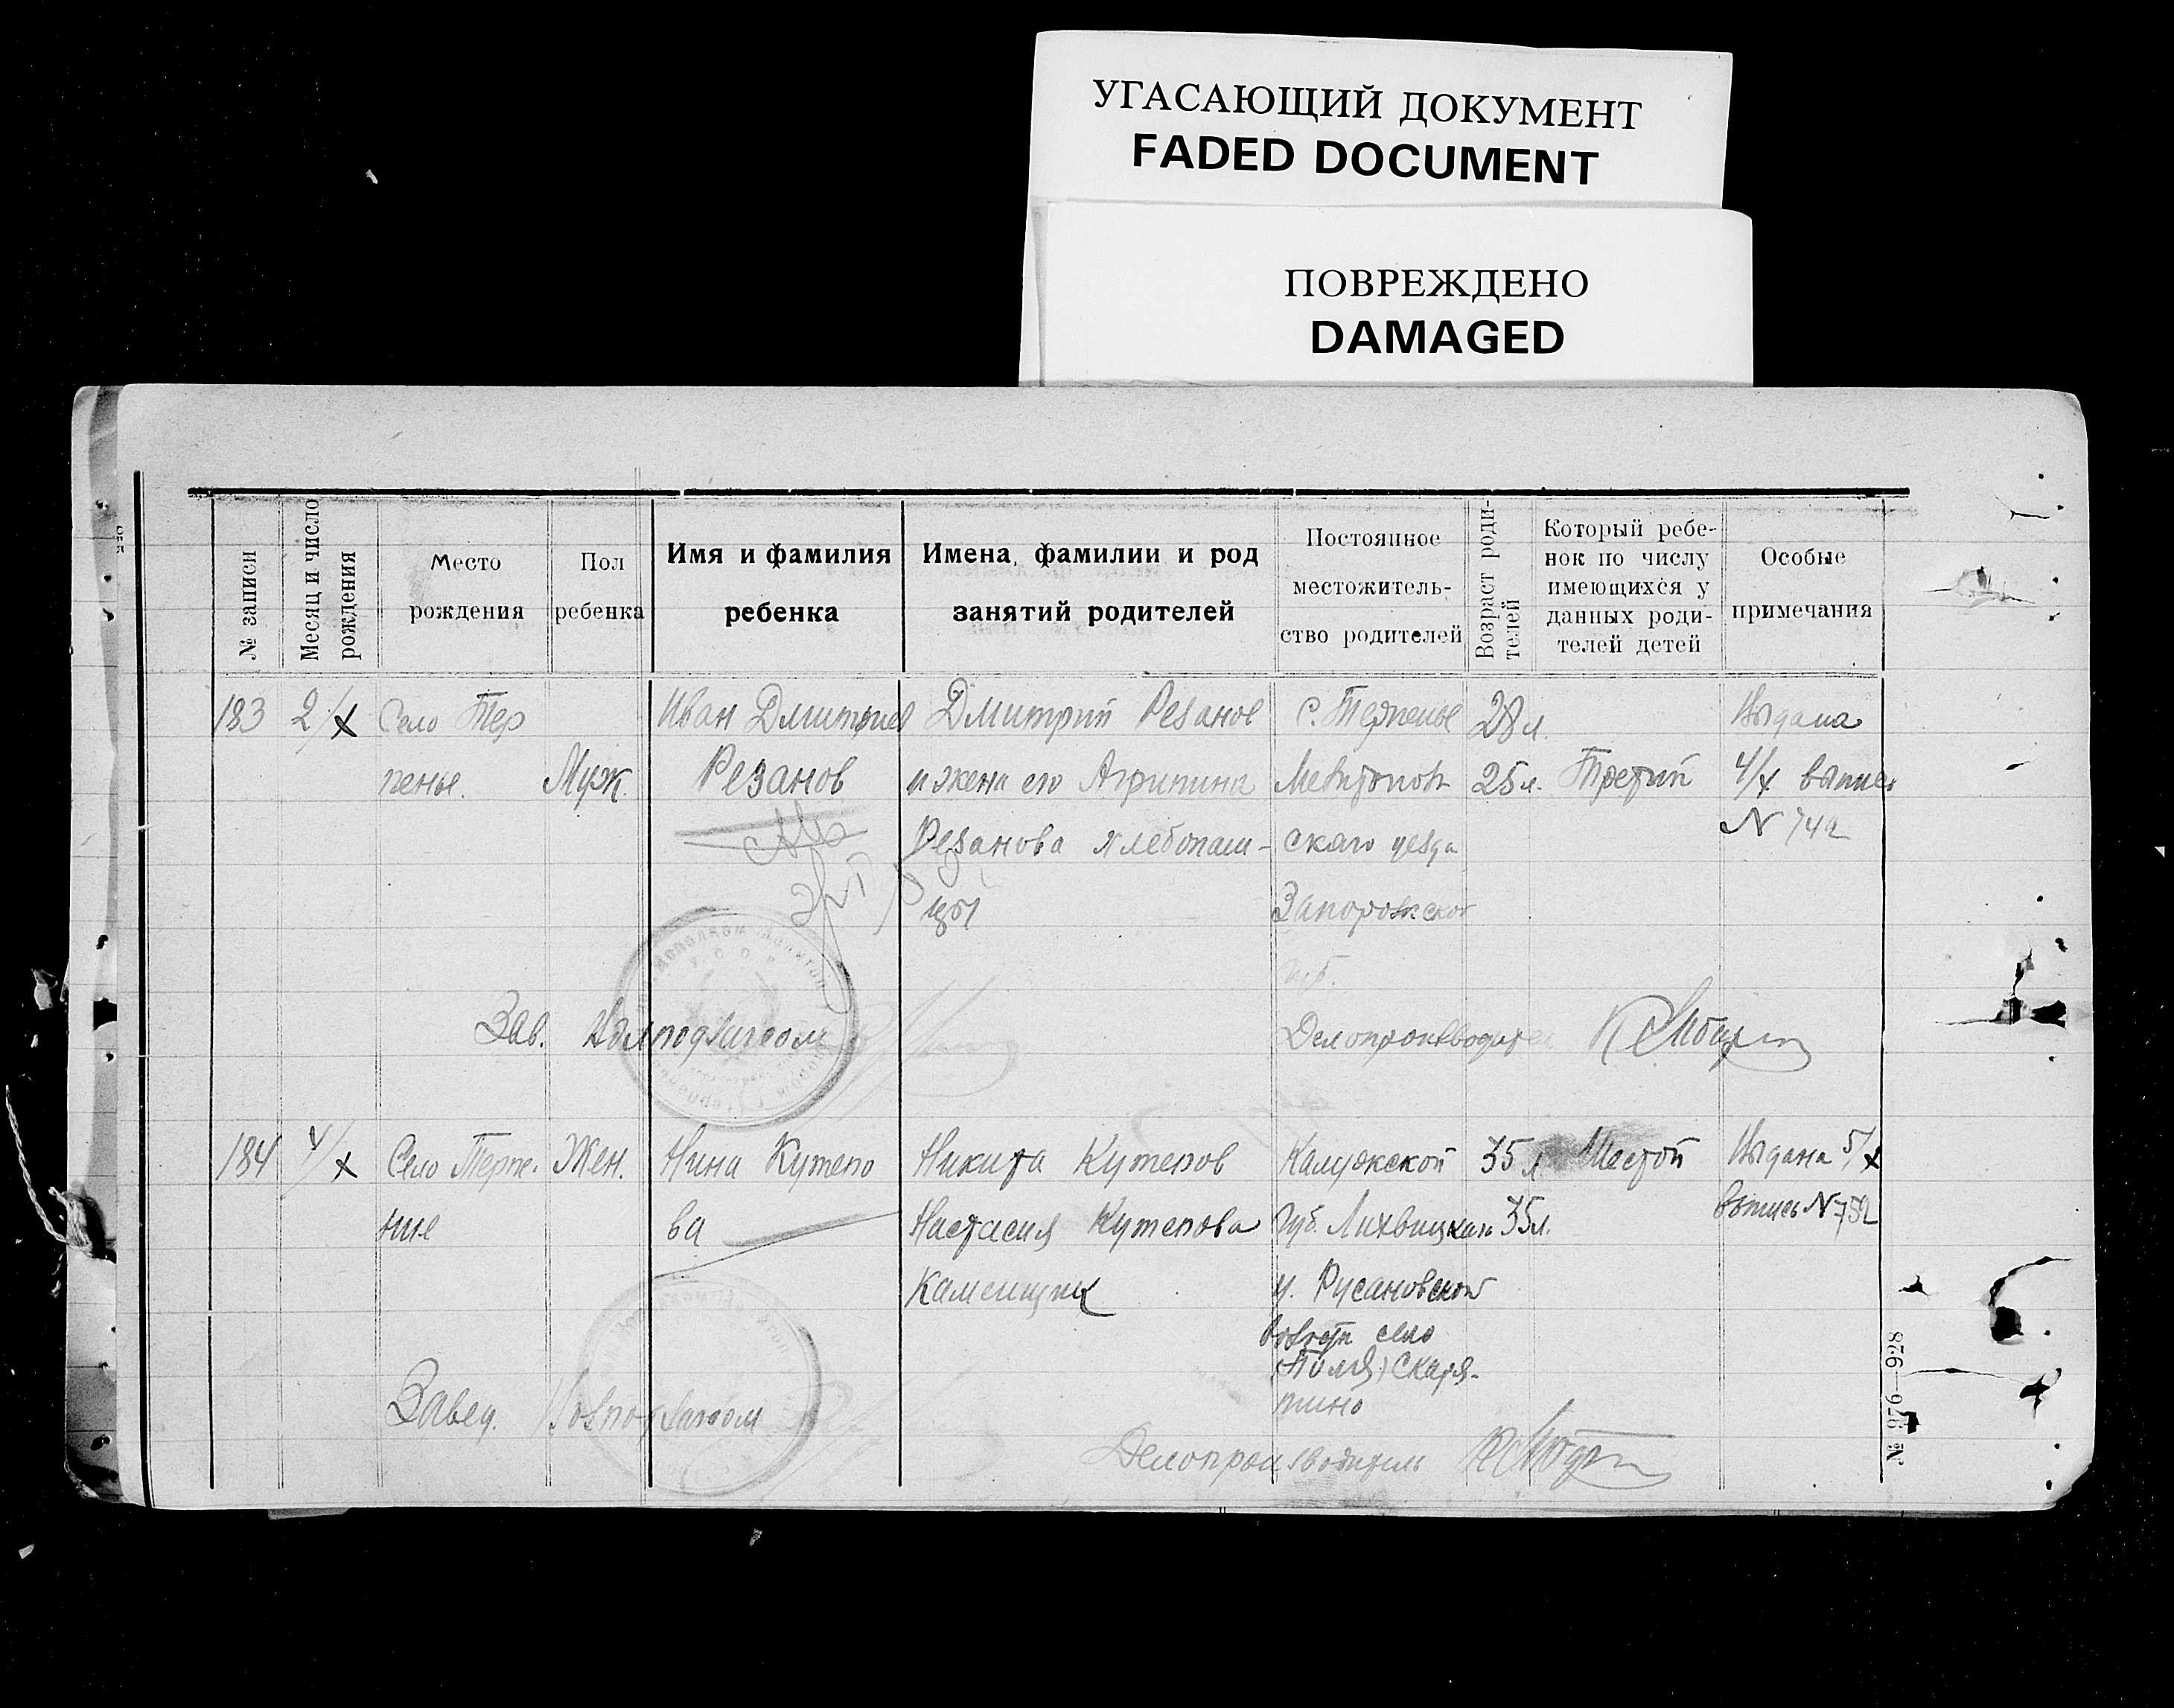 УГАСАЮЩИЙ ДОКУМЕНТ
FADED DOCUMENT
ПОВРЕЖДЕНО
DAMAGED
№ записи
Месяц и число
рождения
Место
рождения
Пол
ребенка
Имя и фамилия
ребенка
Имена, фамилии и род
занятий родителей
Постоянное
местожитель-
ство родителей
Возраст роди-
телей
Который ребе-
нок по числу
имеющихся у
данных роди-
телей детей
Особые
примечания
183
2/X
Село Тер
пенье.
Муж.
Иван Дмитриев
Резанов
Дмитрий Резанов
и жена его Агрипина
Резанова хлебопаш-
цы
с. Терпенье
Мелитопол
ского уезда
Запорожской
губ.
28 л.
25 л.
Третий
Выдана
4/X выпись
N 742
Зав.
Делопроизводитель
184
4/X
Село Терпе-
ние
Жен.
Нина Кутепо
ва
Никита Кутепов
Настасия Кутепова
Каменщик
Калужской
губ. Лихвицкаго
у. Русановской
волости село
Скаря-
тино
35 л
35 л.
Шестой
Выдана 5/X
выпись N 752
Завед.
Делопроизводитель
№ 976—928